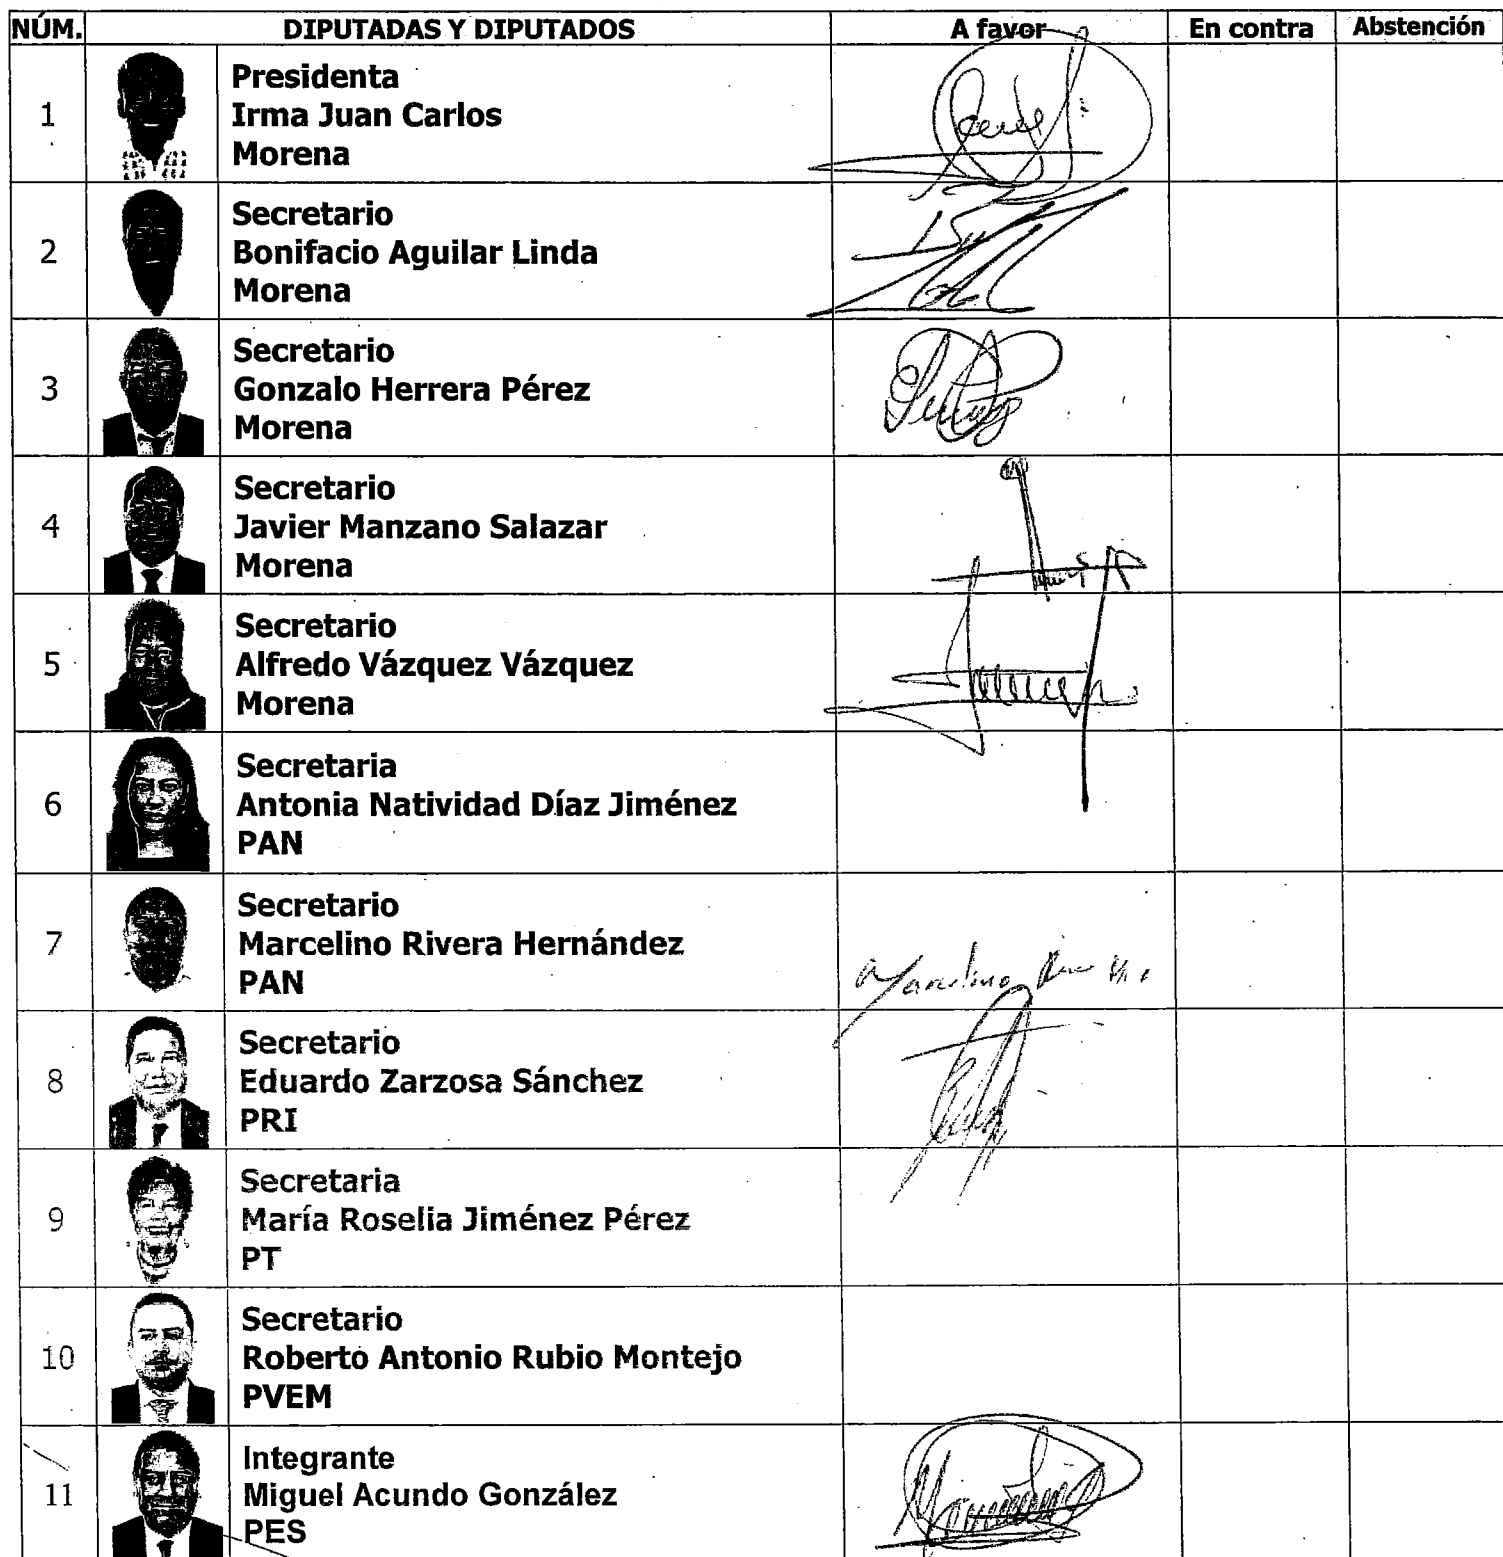 NÚM. DIPUTADAS Y DIPUTADOS A favor En contra Abstención
1 Presidenta
Irma Juan Carlos
Morena
2 Secretario
Bonifacio Aguilar Linda
Morena
3 Secretario
Gonzalo Herrera Pérez
Morena
4 Secretario
Javier Manzano Salazar
Morena
5 Secretario
Alfredo Vázquez Vázquez
Morena
6 Secretaria
Antonia Natividad Díaz Jiménez
PAN
7 Secretario
Marcelino Rivera Hernández
PAN
Marcelino
8 Secretario
Eduardo Zarzosa Sánchez
PRI
9 Secretaria
María Roselia Jiménez Pérez
PT
10 Secretario
Roberto Antonio Rubio Montejo
PVEM
11 Integrante
Miguel Acundo González
PES